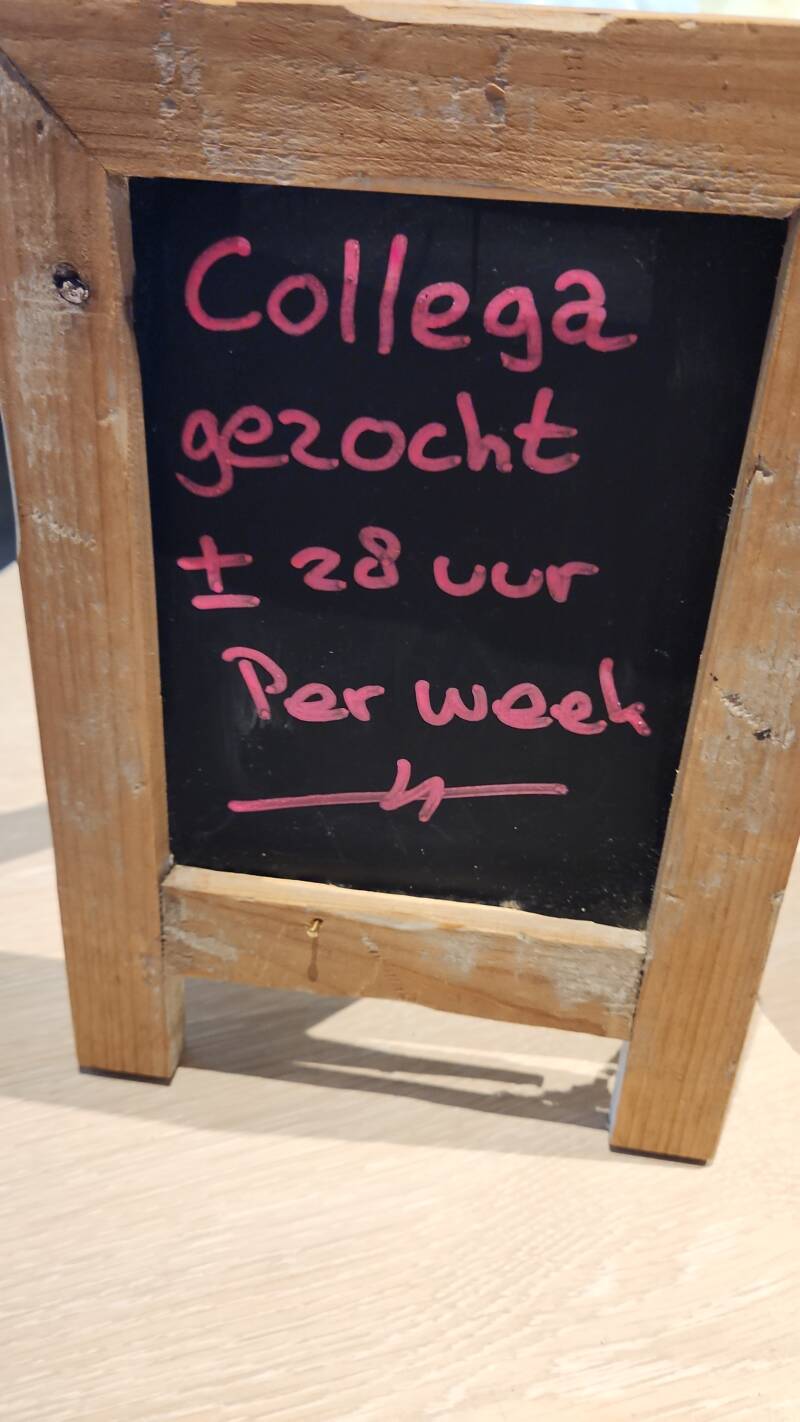 Collega
gezocht
± 28 uur
Per week